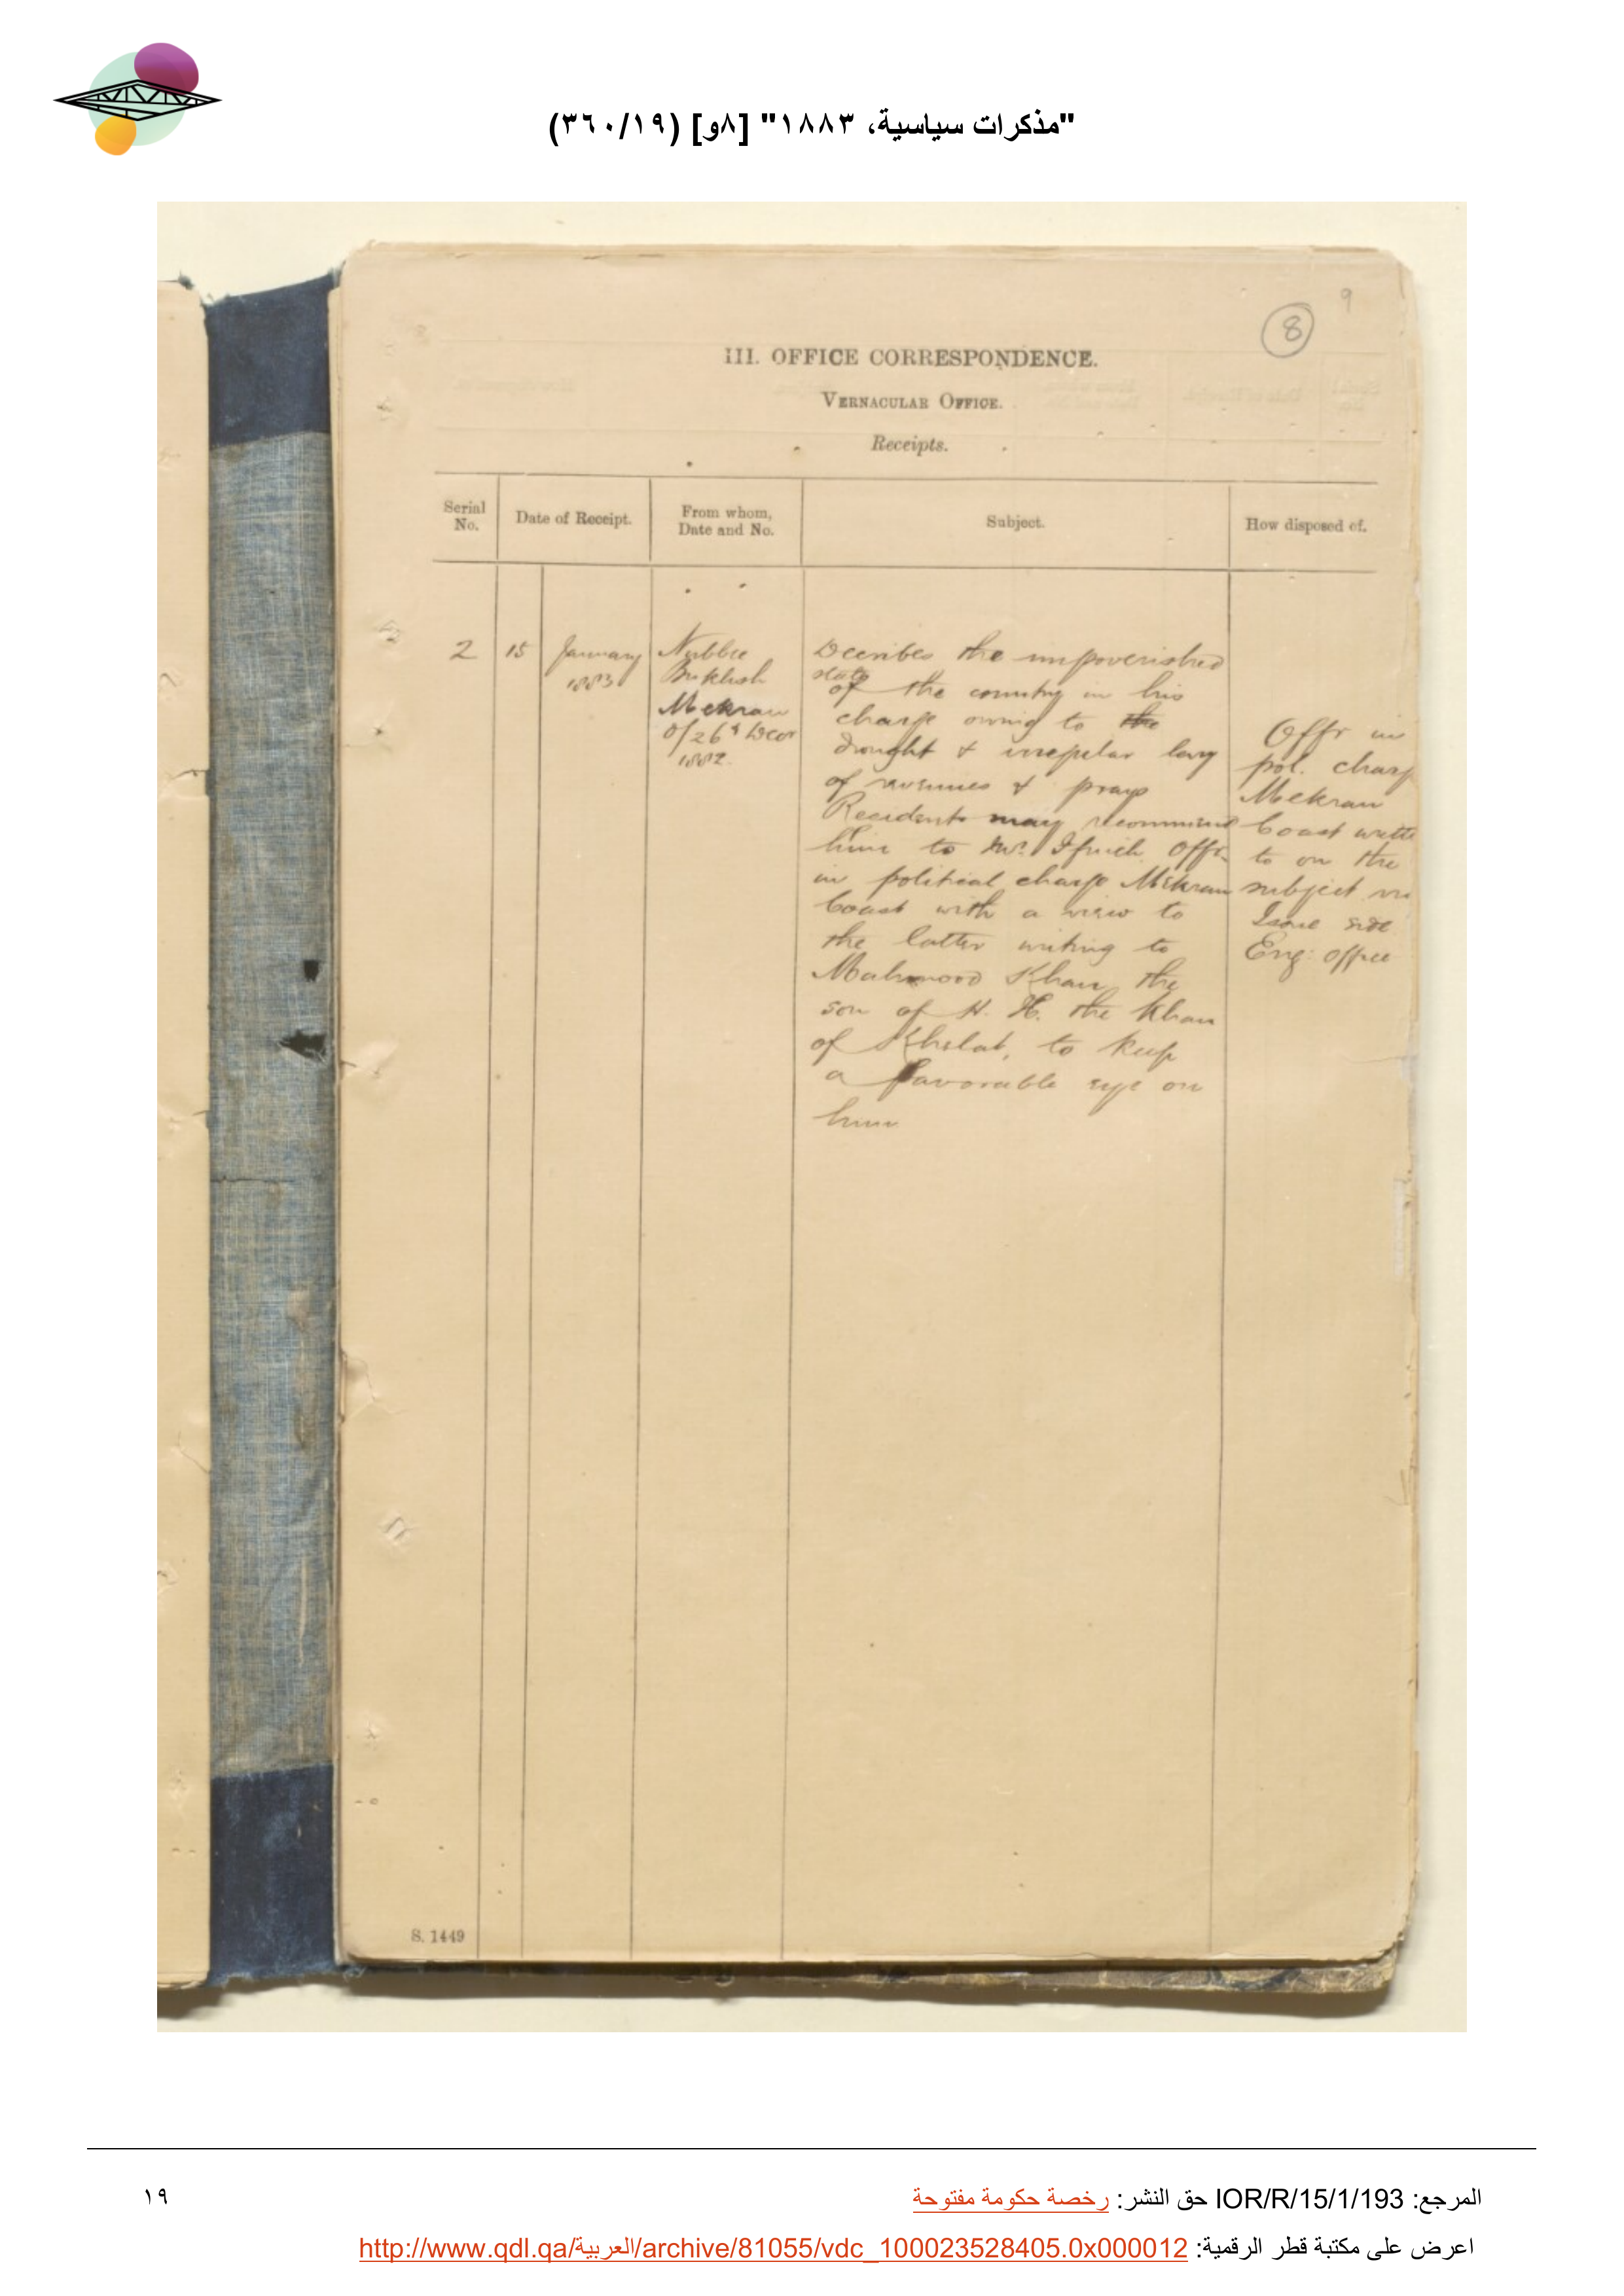 "مذكرات سياسية، ١٨٨٣" [٨و] (٣٦٠/١٩)
9
8
III. OFFICE CORRESPONDENCE.
VERNACULAR OFFICE.
Receipts.
Serial No.
Date of Receipt.
From whom, Date and No.
Subject.
How disposed of.
2
15
January
1883
Nubbee
Bukhsh
Mekran
d/26th Decr
1882.
Describes the impoverished
state
of the country in his
charge owing to the
drought & irregular levy
of revenues & prays
Resident may recommend
him to Mr. Offr.
in political charge Mekran
Coast with a view to
the latter writing to
Mahmood Khan, the
son of H. H. the Khan
of Khelat, to keep
a favorable eye on
him
Offr in
pol. charge
Mekran
Coast written
to on the
subject
Issue side
Eng: office
S. 1449
المرجع: IOR/R/15/1/193 حق النشر: رخصة حكومة مفتوحة
١٩
اعرض على مكتبة قطر الرقمية: http://www.qdl.qa/العربية/archive/81055/vdc_100023528405.0x000012